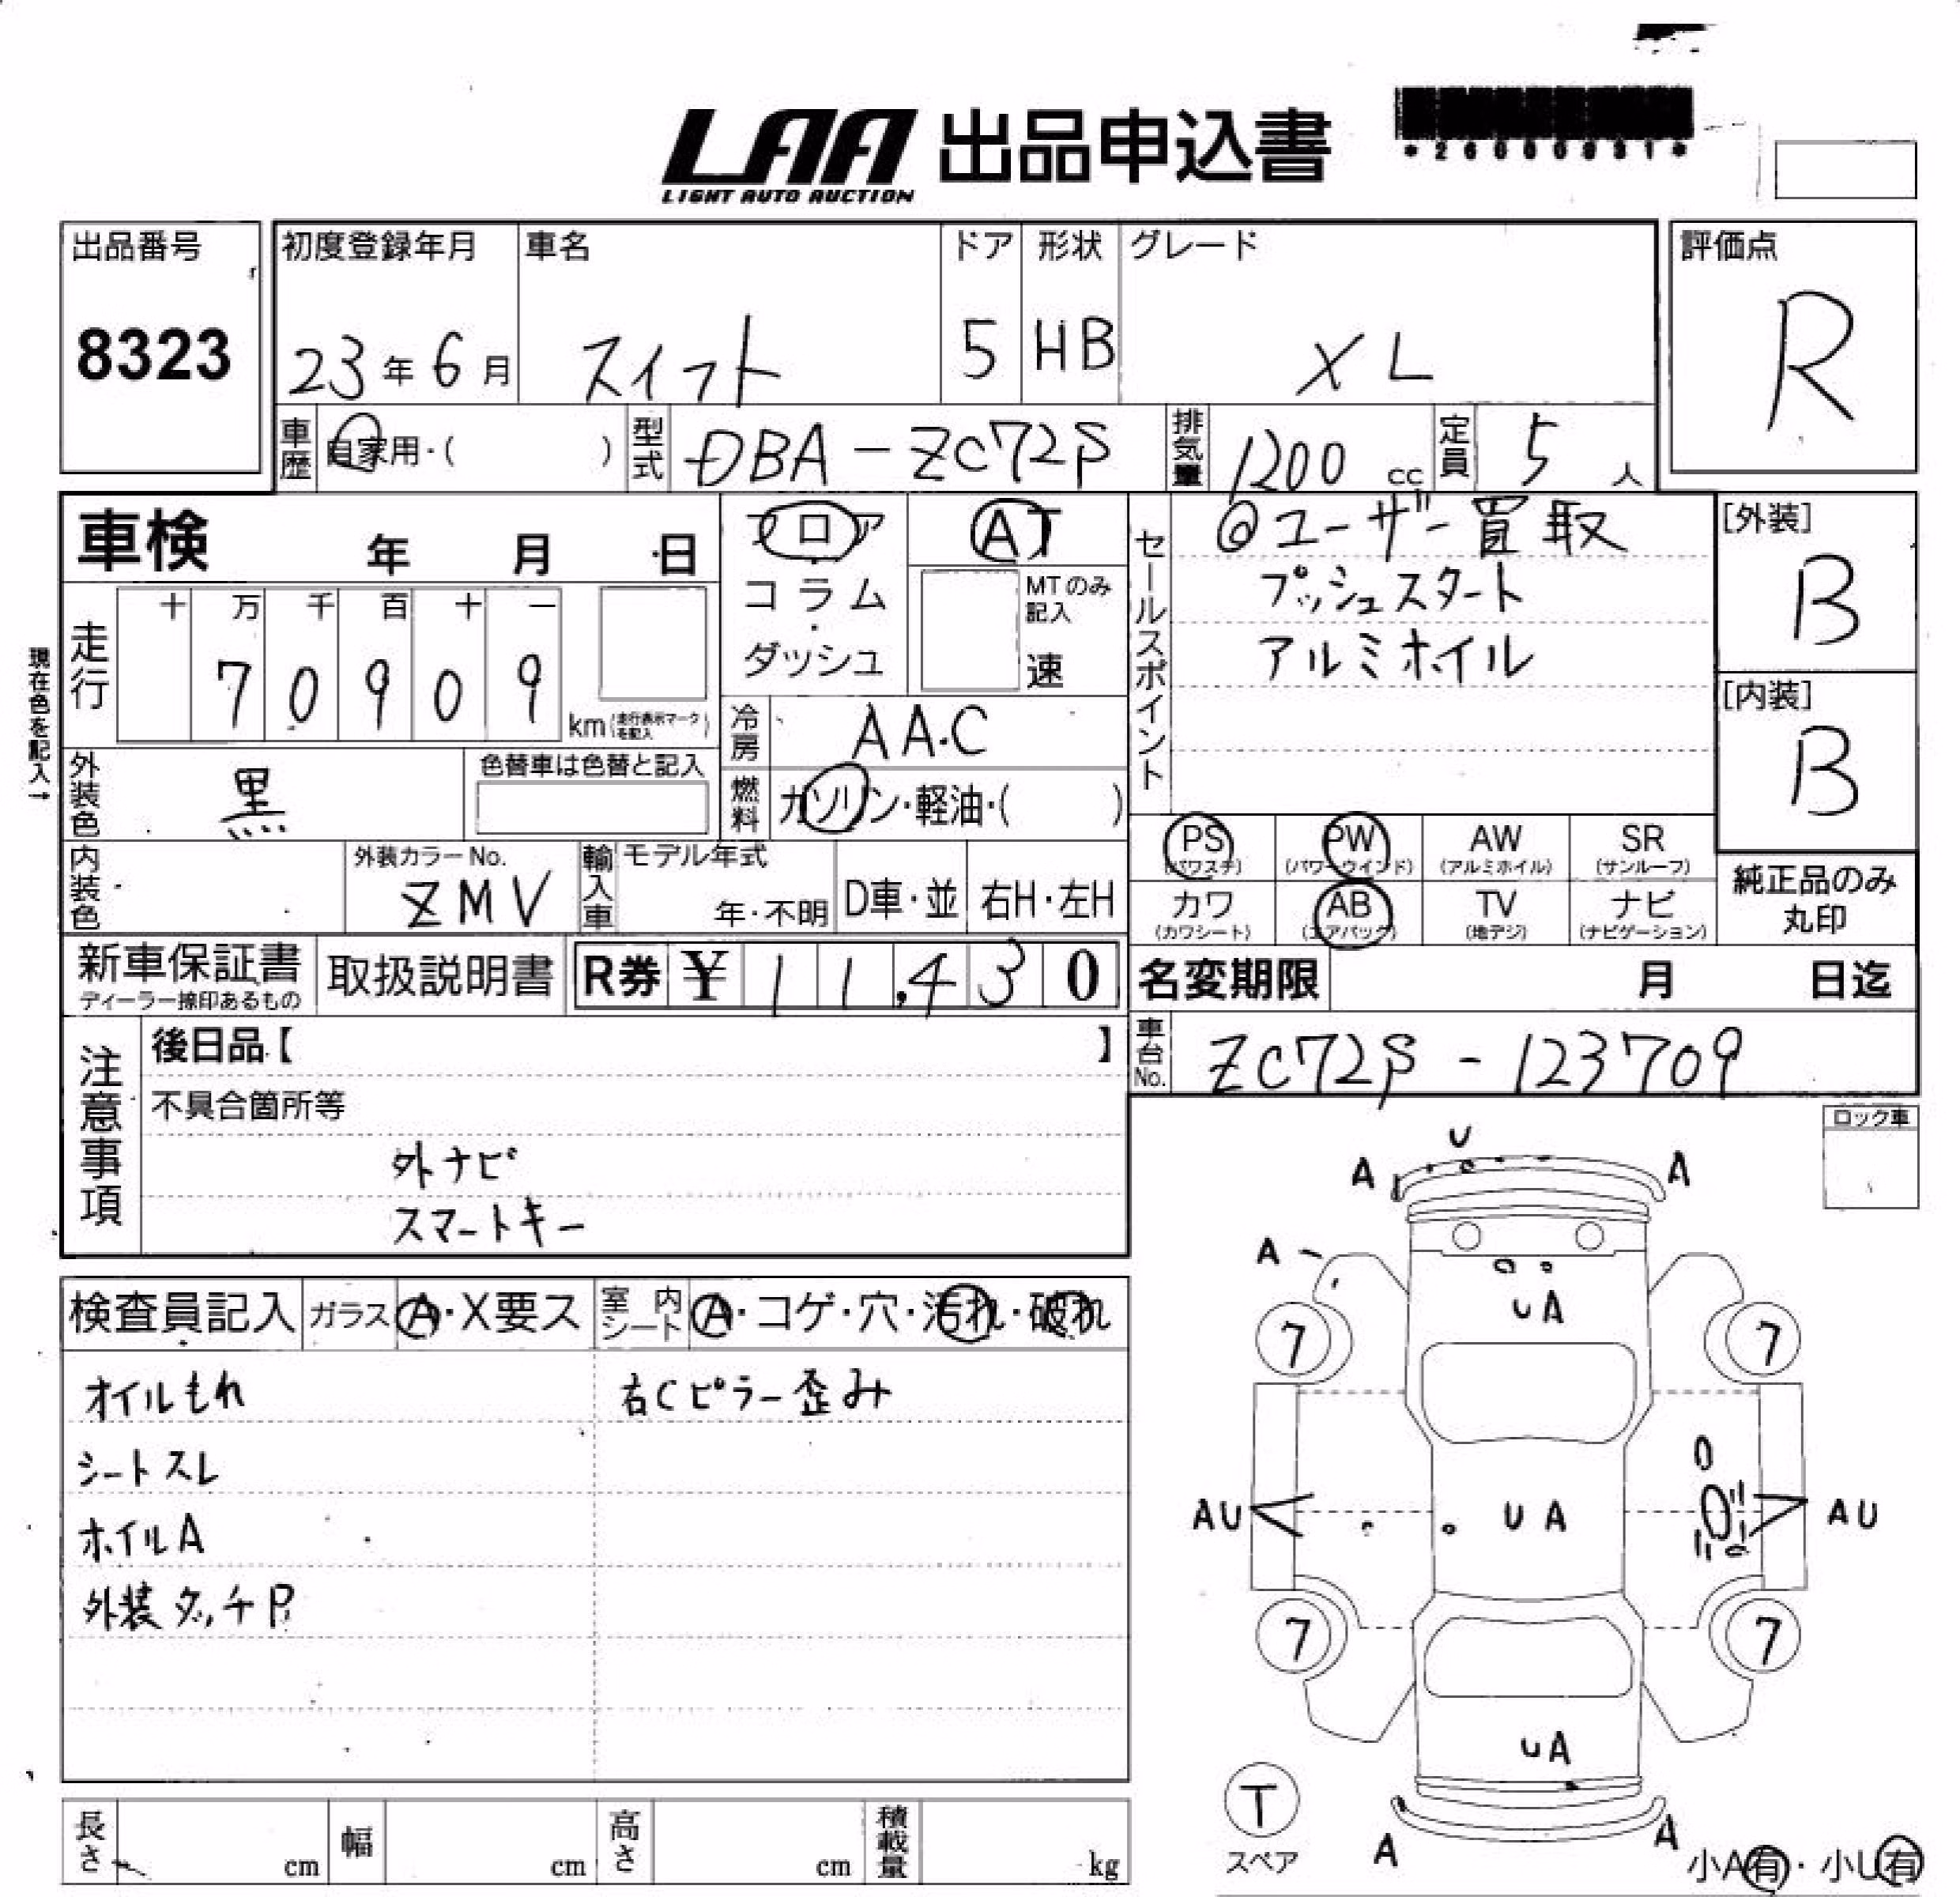 LAA 出品申込書
LIGHT AUTO AUCTION
*26000931*
出品番号
8323
初度登録年月 車名 ドア 形状 グレード
23年6月 スイフト 5 HB XL
評価点
R
車歴 自家用・( ) 型式 DBA-ZC72S 排気量 1200cc 定員 5人
車検 年 月 日
フロア AT
コラム・ダッシュ
MTのみ記入 速
セールスポイント
◎ユーザー買取
プッシュスタート
アルミホイル
[外装]
B
[内装]
B
現在色を記入→
走行 十 万 千 百 十 一
70909 km (走行表示マークを記入)
冷房 AA.C
外装色 黒 色替車は色替と記入
燃料 ガソリン・軽油・( )
PS (パワステ) PW (パワーウインド) AW (アルミホイル) SR (サンルーフ)
カワ (カワシート) AB (エアバック) TV (地デジ) ナビ (ナビゲーション)
純正品のみ丸印
内装色 外装カラーNo. ZMV 輸入車 モデル年式 年・不明 D車・並 右H・左H
新車保証書 ディーラー捺印あるもの 取扱説明書 R券 ¥ 11,430
名変期限 月 日迄
車台No. ZC72S-123709
注意事項
後日品【 】
不具合箇所等
外ナビ
スマートキー
ロック車
検査員記入 ガラス A・X要ス 室内シート A・コゲ・穴・汚れ・破れ
オイルもれ 右Cピラー歪み
シートスレ
ホイルA
外装タッチP
U
A A
A
U A
7 7
AU U A AU
7 7
U A
T
スペア
A A
小A有・小U有
長さ cm 幅 cm 高さ cm 積載量 kg